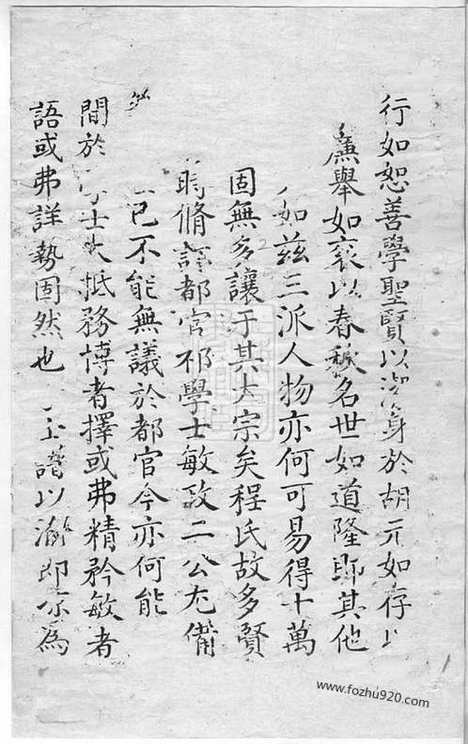 行如恕善學聖賢以潔身於胡元如存
廉舉如裘以春秋名世如道隆即其他
如茲三派人物亦何可易得十萬
固無多讓于其大宗矣程氏故多賢
時脩譜都官祁學士敏政二公尤備
已不能無議於都官今亦何能
間於 士大抵務博者擇或弗精矜敏者
語或弗詳勢固然也 以瀚即 為
www.fozhu920.com